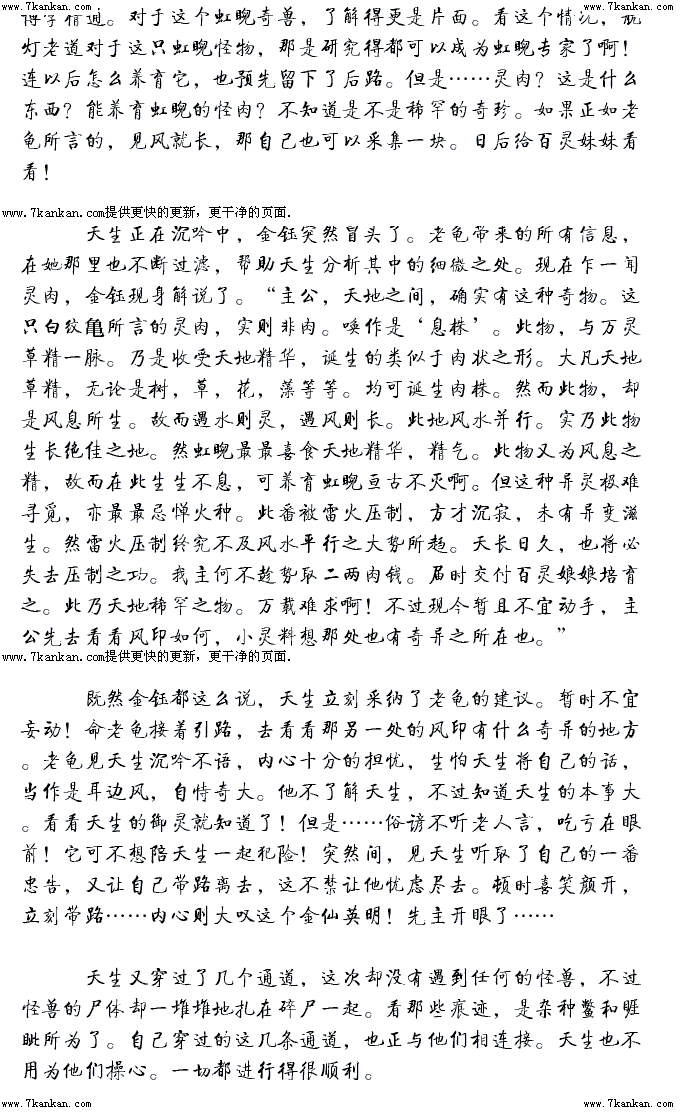 www.7kankan.com www.7kankan.com
博学精通。对于这个虹晲奇兽，了解得更是片面。看这个情况，
灯老道对于这只虹晲怪物，那是研究得都可以成为虹晲专家了啊！
连以后怎么养育它，也预先留下了后路。但是……灵肉？这是什么
东西？能养育虹晲的怪肉？不知道是不是稀罕的奇珍。如果正如老
龟所言的，见风就长，那自己也可以采集一块。日后给百灵妹妹看
看！
www.7kankan.com提供更快的更新，更干净的页面．
天生正在沉吟中，金钰突然冒头了。老龟带来的所有信息，
在她那里也不断过滤，帮助天生分析其中的细微之处。现在乍一闻
灵肉，金钰现身解说了。“主公，天地之间，确实有这种奇物。这
只白纹亀所言的灵肉，实则非肉。唤作是‘息株’。此物，与万灵
草精一脉。乃是收受天地精华，诞生的类似于肉状之形。大凡天地
草精，无论是树，草，花，藻等等。均可诞生肉株。然而此物，却
是风息所生。故而遇水则灵，遇风则长。此地风水并行。实乃此物
生长绝佳之地。然虹晲最最喜食天地精华，精气。此物又为风息之
精，故而在此生生不息，可养育虹晲亘古不灭啊。但这种异灵极难
寻觅，亦最最忌惮火种。此番被雷火压制，方才沉寂，未有异变滋
生。然雷火压制终究不及风水平行之大势所趋。天长日久，也将必
失去压制之功。我主何不趁势取二两肉钱。届时交付百灵娘娘培育
之。此乃天地稀罕之物。万载难求啊！不过现今暂且不宜动手，主
公先去看看风印如何，小灵料想那处也有奇异之所在也。”
www.7kankan.com提供更快的更新，更干净的页面．
既然金钰都这么说，天生立刻采纳了老龟的建议。暂时不宜
妄动！命老龟接着引路，去看看那另一处的风印有什么奇异的地方
。老龟见天生沉吟不语，内心十分的担忧，生怕天生将自己的话，
当作是耳边风，自恃奇大。他不了解天生，不过知道天生的本事大
。看看天生的御灵就知道了！但是……俗谚不听老人言，吃亏在眼
前！它可不想陪天生一起犯险！突然间，见天生听取了自己的一番
忠告，又让自己带路离去，这不禁让他忧虑尽去。顿时喜笑颜开，
立刻带路……内心则大叹这个金仙英明！先主开眼了……
天生又穿过了几个通道，这次却没有遇到任何的怪兽，不过
怪兽的尸体却一堆堆地扎在碎尸一起。看那些痕迹，是杂种鳖和睚
眦所为了。自己穿过的这几条通道，也正与他们相连接。天生也不
用为他们操心。一切都进行得很顺利。
www.7kankan.com www.7kankan.com